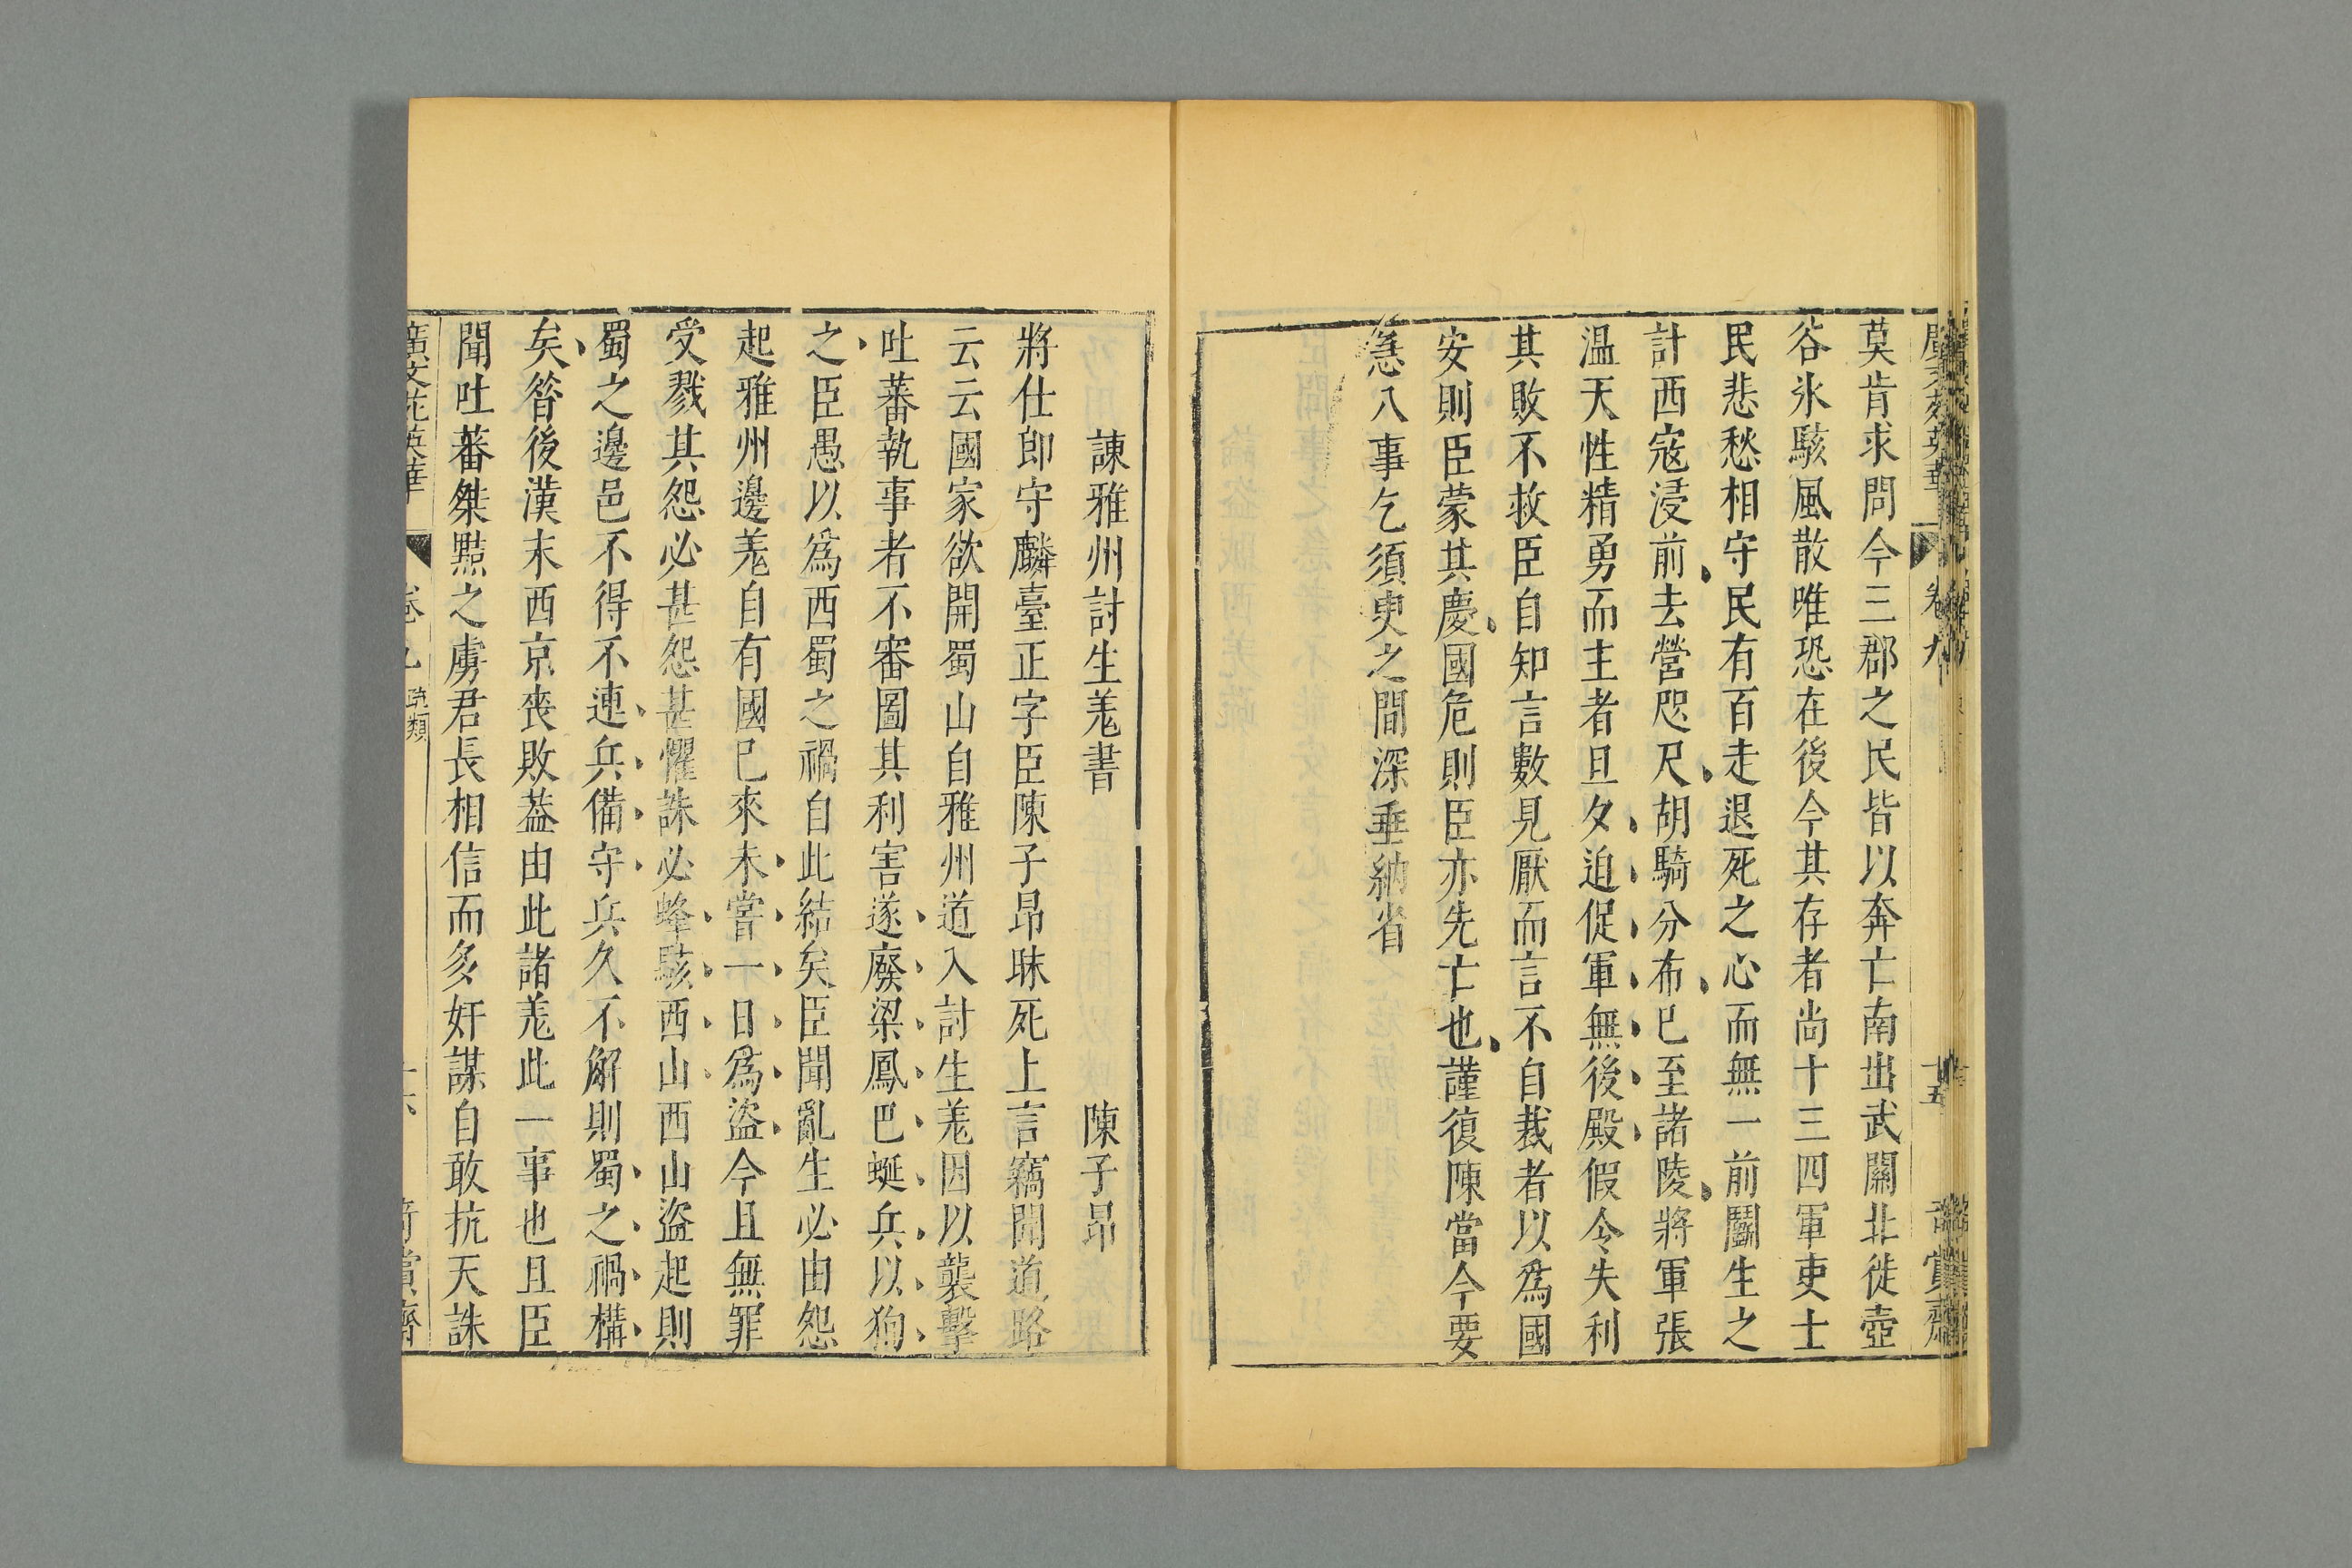 廣文苑英華 卷九 十五 奇賞齋
莫肯求問今三郡之民皆以奔亡南出武關北徙壺
谷氷駭風散唯恐在後今其存者尚十三四軍吏士
民悲愁相守民有百走退死之心而無一前鬭生之
計西寇浸前去營咫尺胡騎分布已至諸陵將軍張
温天性精勇而主者旦夕迫促軍無後殿假令失利
其敗不救臣自知言數見厭而言不自裁者以為國
安則臣蒙其慶國危則臣亦先亡也謹復陳當今要
急八事乞須臾之間深垂納省
諫雅州討生羗書 陳子昂
將仕郎守麟臺正字臣陳子昂昧死上言竊聞道路
云云國家欲開蜀山自雅州道入討生羗因以襲擊
吐蕃執事者不審圖其利害遂廢梁鳳巴蜒兵以狥
之臣愚以為西蜀之禍自此結矣臣聞亂生必由怨
起雅州邊羗自有國已來未嘗一日為盜今且無罪
受戮其怨必甚怨甚懼誅必蜂駭西山西山盜起則
蜀之邊邑不得不連兵備守兵久不解則蜀之禍構
矣昝後漢末西京喪敗葢由此諸羗此一事也且臣
聞吐蕃桀黠之虜君長相信而多奸謀自敢抗天誅
廣文苑英華 卷九 疏類 十六 奇賞齋